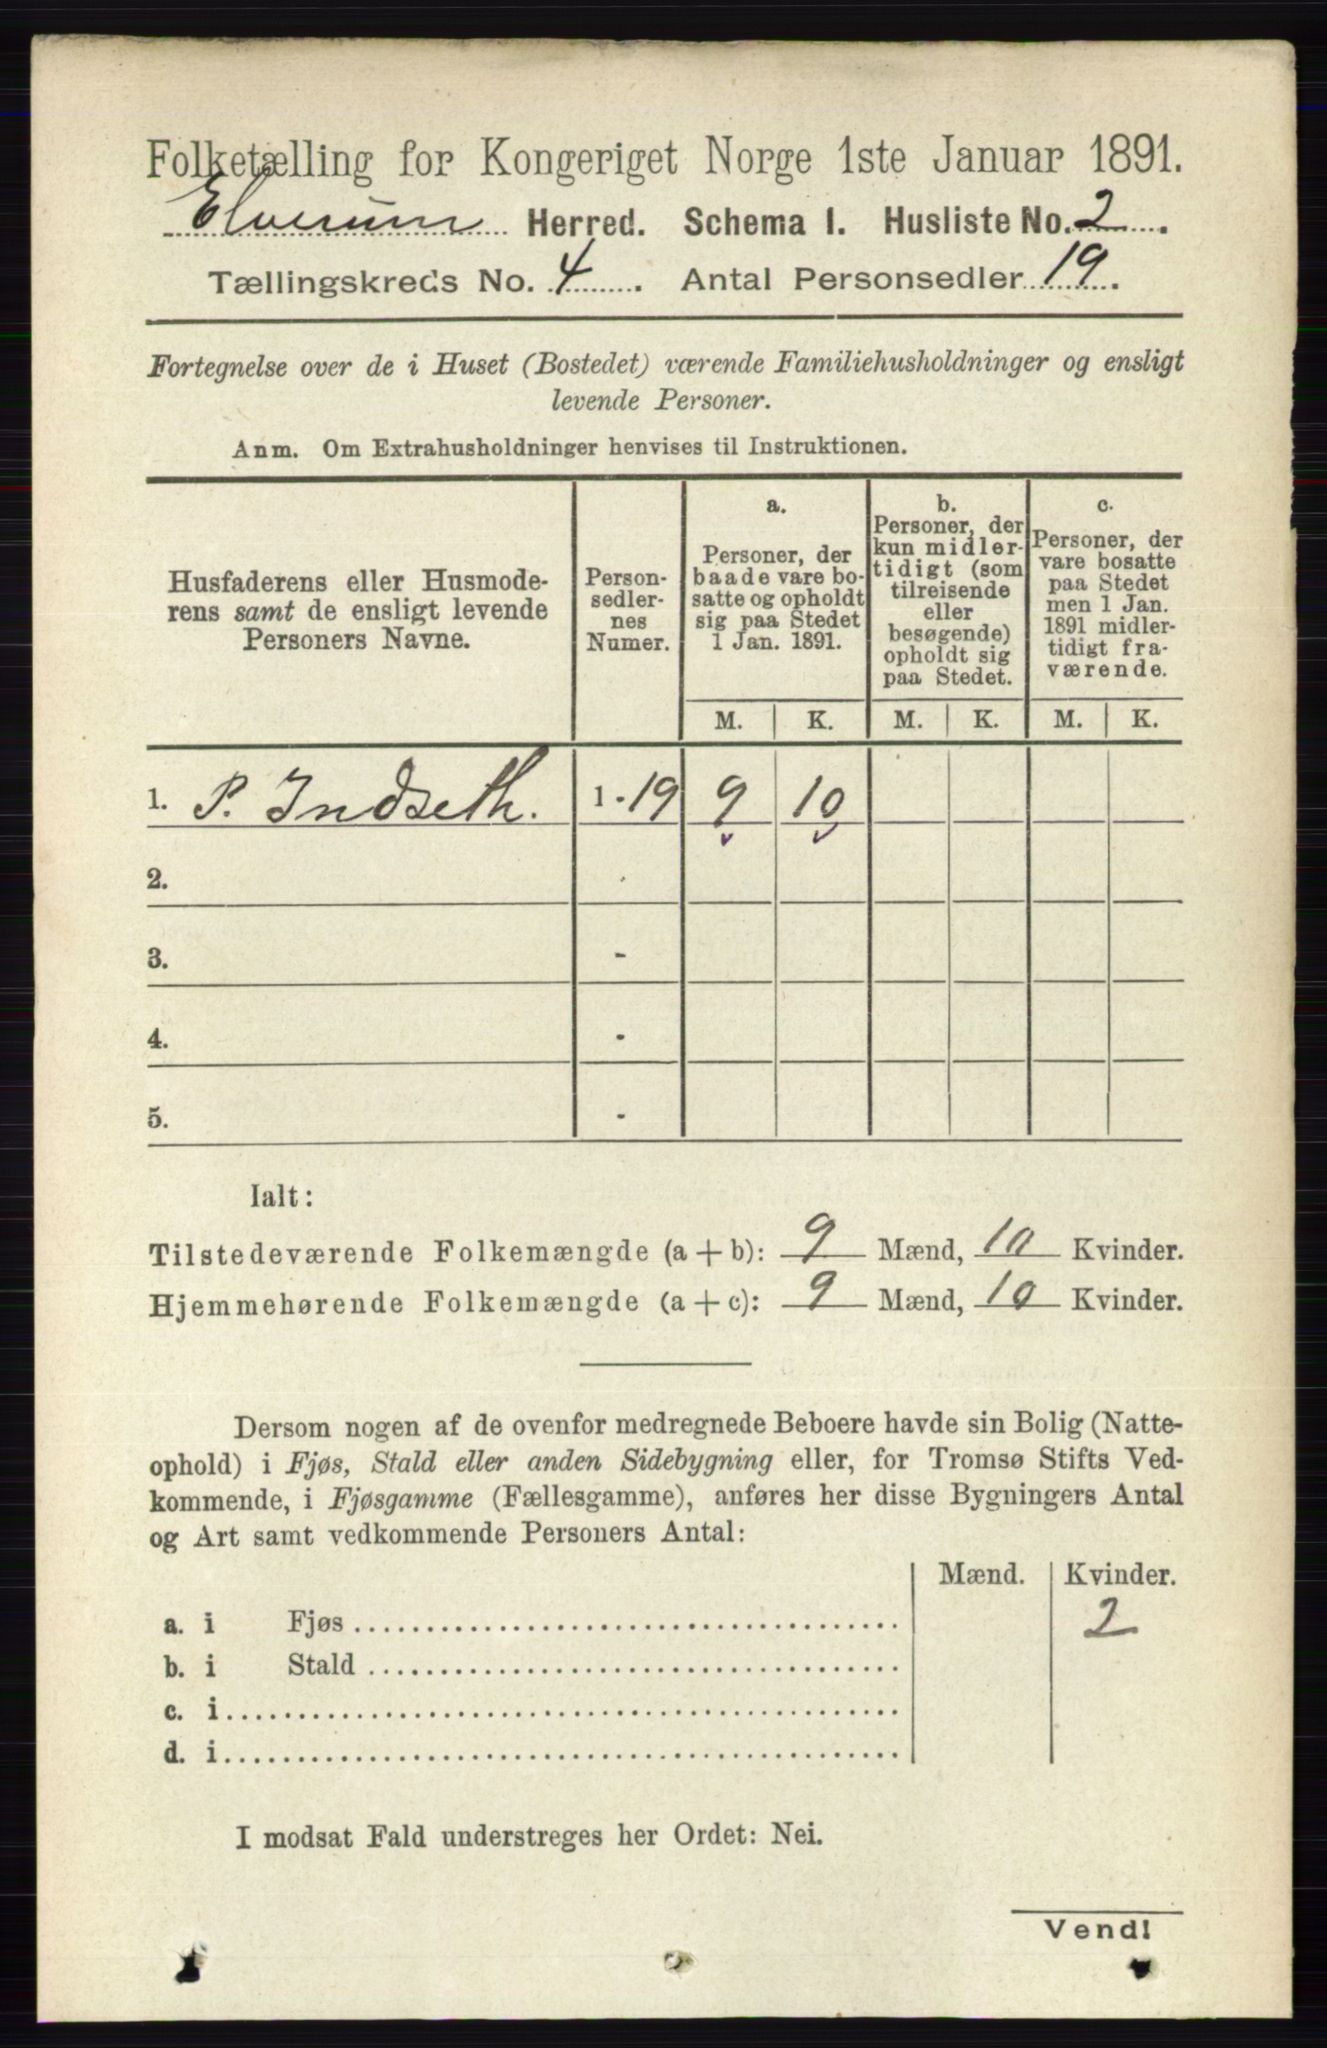 Folketælling for Kongeriget Norge 1ste Januar 1891.
Elverum Herred. Schema I. Husliste No. 2.
Tællingskreds No. 4. Antal Personsedler 19.
Fortegnelse over de i Huset (Bostedet) værende Familiehusholdninger og ensligt
levende Personer.
Anm. Om Extrahusholdninger henvises til Instruktionen.
Husfaderens eller Husmode-
rens samt de ensligt levende
Personers Navne.
Person-
sedler-
nes
Numer.
a.
Personer, der
baade vare bo-
satte og opholdt
sig paa Stedet
1 Jan. 1891.
b.
Personer, der
kun midler-
tidigt (som
tilreisende
eller
besøgende)
opholdt sig
paa Stedet.
c.
Personer, der
vare bosatte
paa Stedet
men 1 Jan.
1891 midler-
tidigt fra-
værende.
M. K. M. K. M. K.
1. P. Indseth. 1 - 19 9 10
2.
3. -
4. -
5. -
Ialt:
Tilstedeværende Folkemængde (a + b): 9 Mænd, 10 Kvinder.
Hjemmehørende Folkemængde (a + c): 9 Mænd, 10 Kvinder.
Dersom nogen af de ovenfor medregnede Beboere havde sin Bolig (Natte-
ophold) i Fjøs, Stald eller anden Sidebygning eller, for Tromsø Stifts Ved-
kommende, i Fjøsgamme (Fællesgamme), anføres her disse Bygningers Antal
og Art samt vedkommende Personers Antal:
Mænd. Kvinder.
a. i Fjøs 2
b. i Stald
c. i
d. i
I modsat Fald understreges her Ordet: Nei.
Vend!